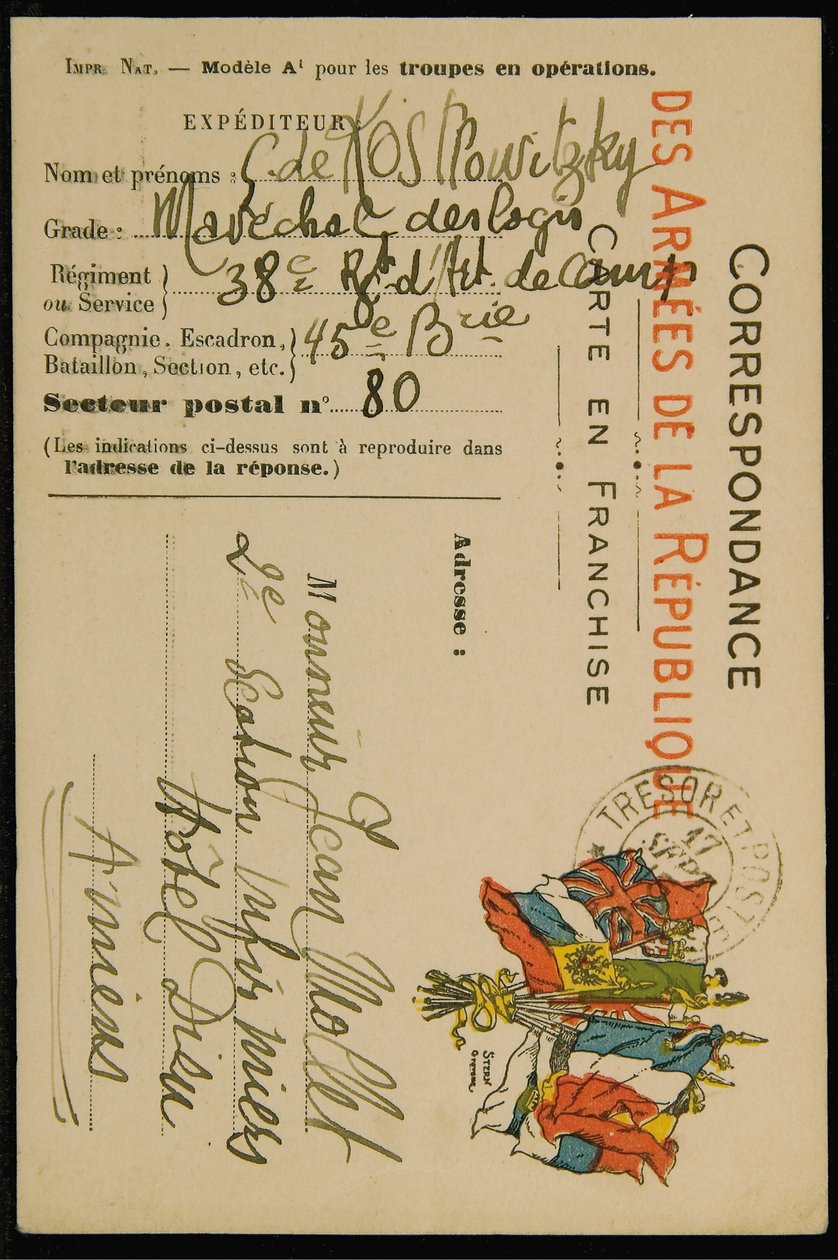 IMPR. NAT. — Modèle A¹ pour les troupes en opérations.
EXPÉDITEUR :
Nom et prénoms : G. de Kostrowitzky
Grade : Maréchal des logis
Régiment ou Service } 38e Rgt d'Art. de Camp
Compagnie, Escadron, Bataillon, Section, etc. } 45e Brie
Secteur postal n° 80
(Les indications ci-dessus sont à reproduire dans
l'adresse de la réponse.)
CORRESPONDANCE
DES ARMÉES DE LA RÉPUBLIQUE
CARTE EN FRANCHISE
TRESOR ET POSTES
17
SEPT
STERN
GRAVEUR
Adresse :
Monsieur Jean Mollet
2e Section Infirmiers
Hôtel Dieu
Amiens